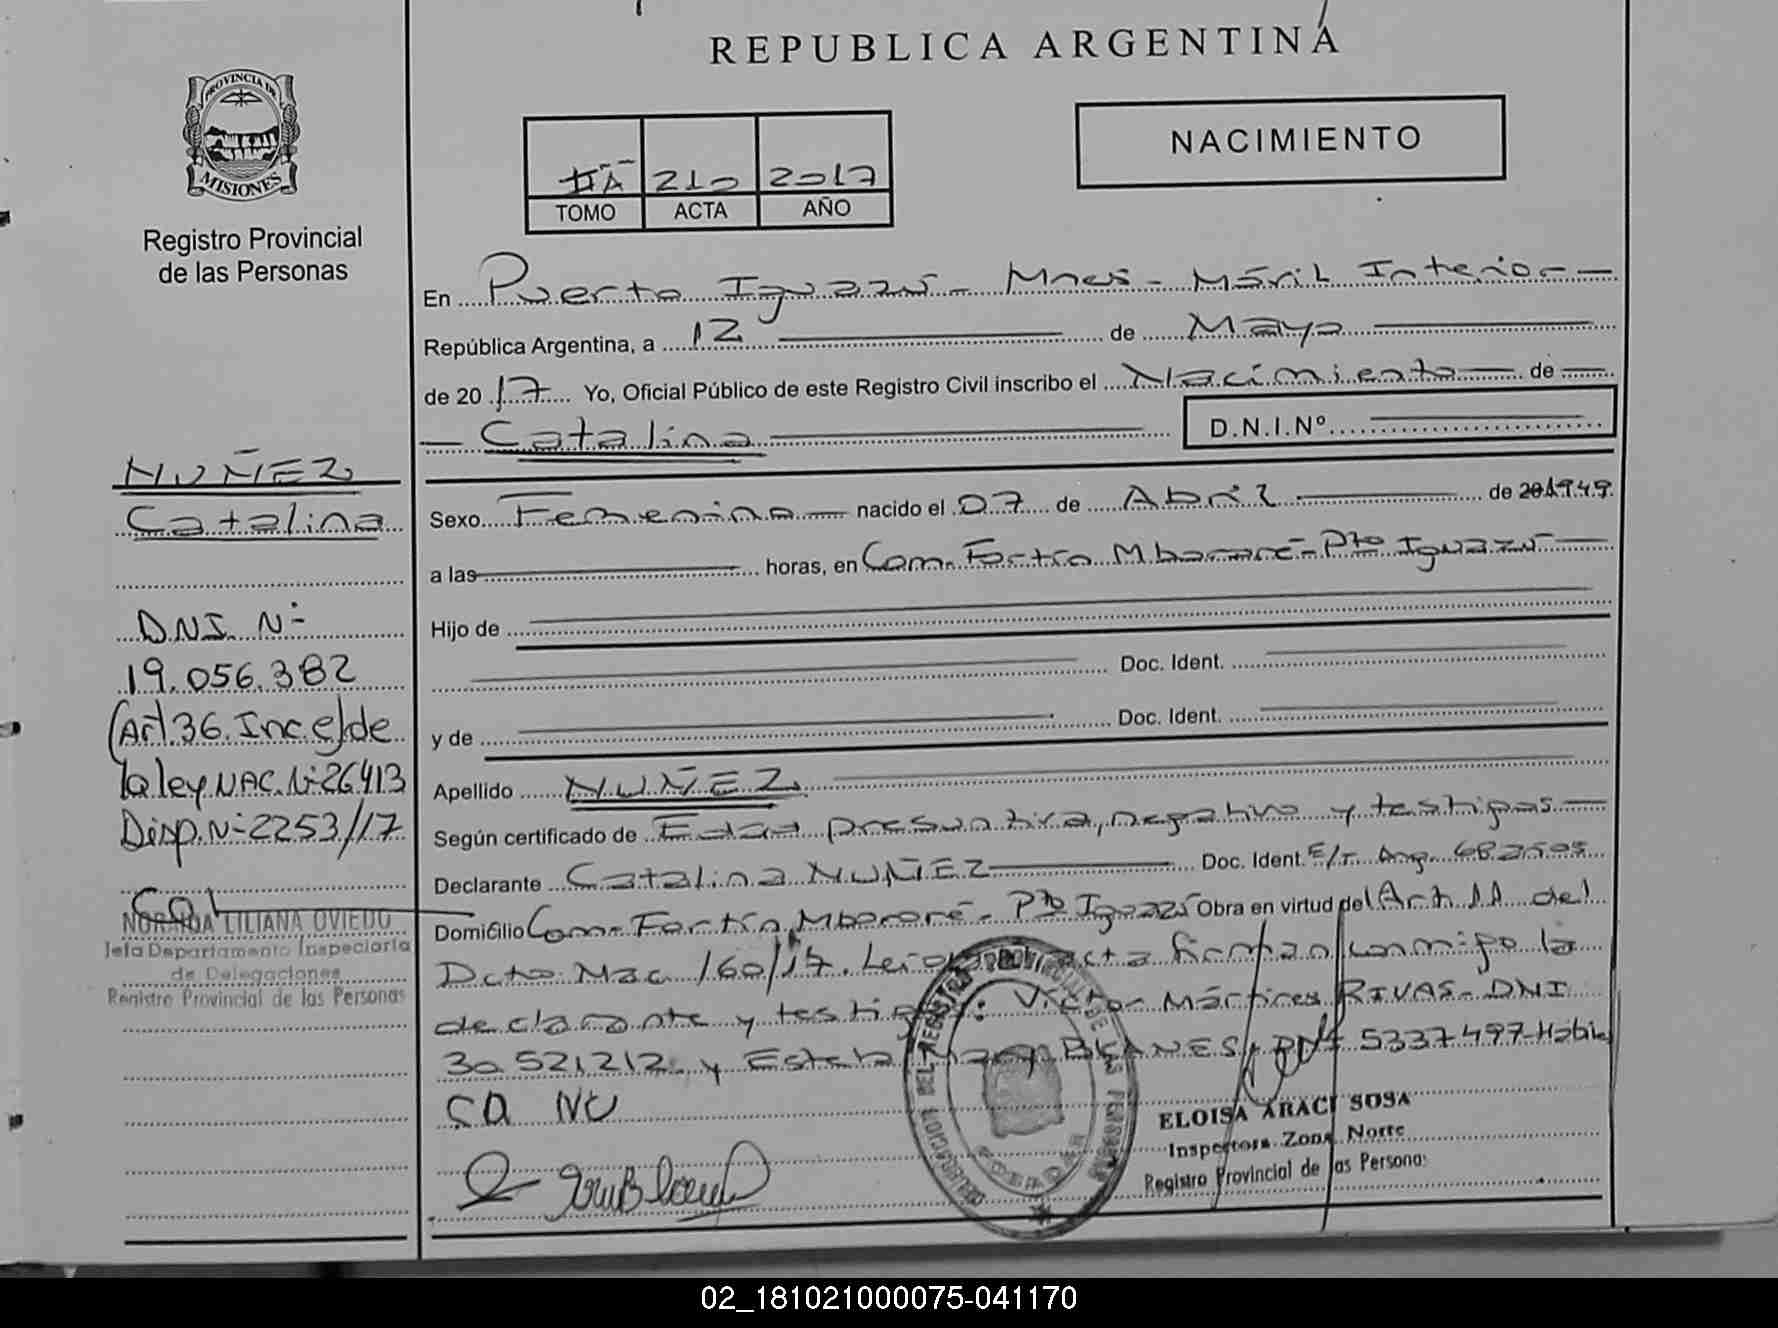 REPUBLICA ARGENTINA
PROVINCIA DE
MISIONES
Registro Provincial
de las Personas
NACIMIENTO
IIA 210 2017
TOMO ACTA AÑO
En Puerto Iguazú - Mnes - Móvil Interior -
República Argentina, a 12 de Mayo
de 2017 Yo, Oficial Público de este Registro Civil inscribo el Nacimiento de
Catalina D.N.I.Nº
Sexo Femenino nacido el 07 de Abril de 1949
a las horas, en Com. Fortín Mbororé - Pto Iguazú
Hijo de
Doc. Ident.
y de Doc. Ident.
Apellido NUÑEZ
Según certificado de Edad presuntiva, negativo y testigos
Declarante Catalina NUÑEZ Doc. Ident. E/T. Arg. 682595
Domicilio Com. Fortín Mbororé - Pto Iguazú Obra en virtud del Art 11 del
Dcto Nac 160/17. Leída acta firman conmigo la
declarante y testigos: Víctor Mártires RIVAS - DNI
30.521.212 y Estela BLANES, DNI 5337.497-
CA NU
ELOISA ARACI SOSA
Inspectora Zona Norte
Registro Provincial de las Personas
NUÑEZ
Catalina
DNI Nº
19.056.382
(Art 36. Inc e) de
la ley NAC. Nº 26413
Disp. Nº 2253/17
NORMDA LILIANA OVIEDO
Jefa Departamento Inspectoría
de Delegaciones
Registro Provincial de las Personas
02_181021000075-041170